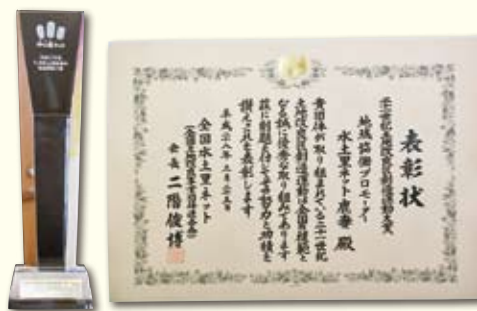 表彰状
二十一世紀土地改良区創造運動大賞
地域協働プロモーター
水土里ネット鹿妻 殿
貴団体が取り組まれている二十一世紀
土地改良区創造運動は全国の模範と
なる誠に優秀な取り組みであります
茲に副賞を付してその努力と功績を
讃えこれを表彰します
平成二八年三月二五日
全国水土里ネット
(全国土地改良事業団体連合会)
会長 二階俊博